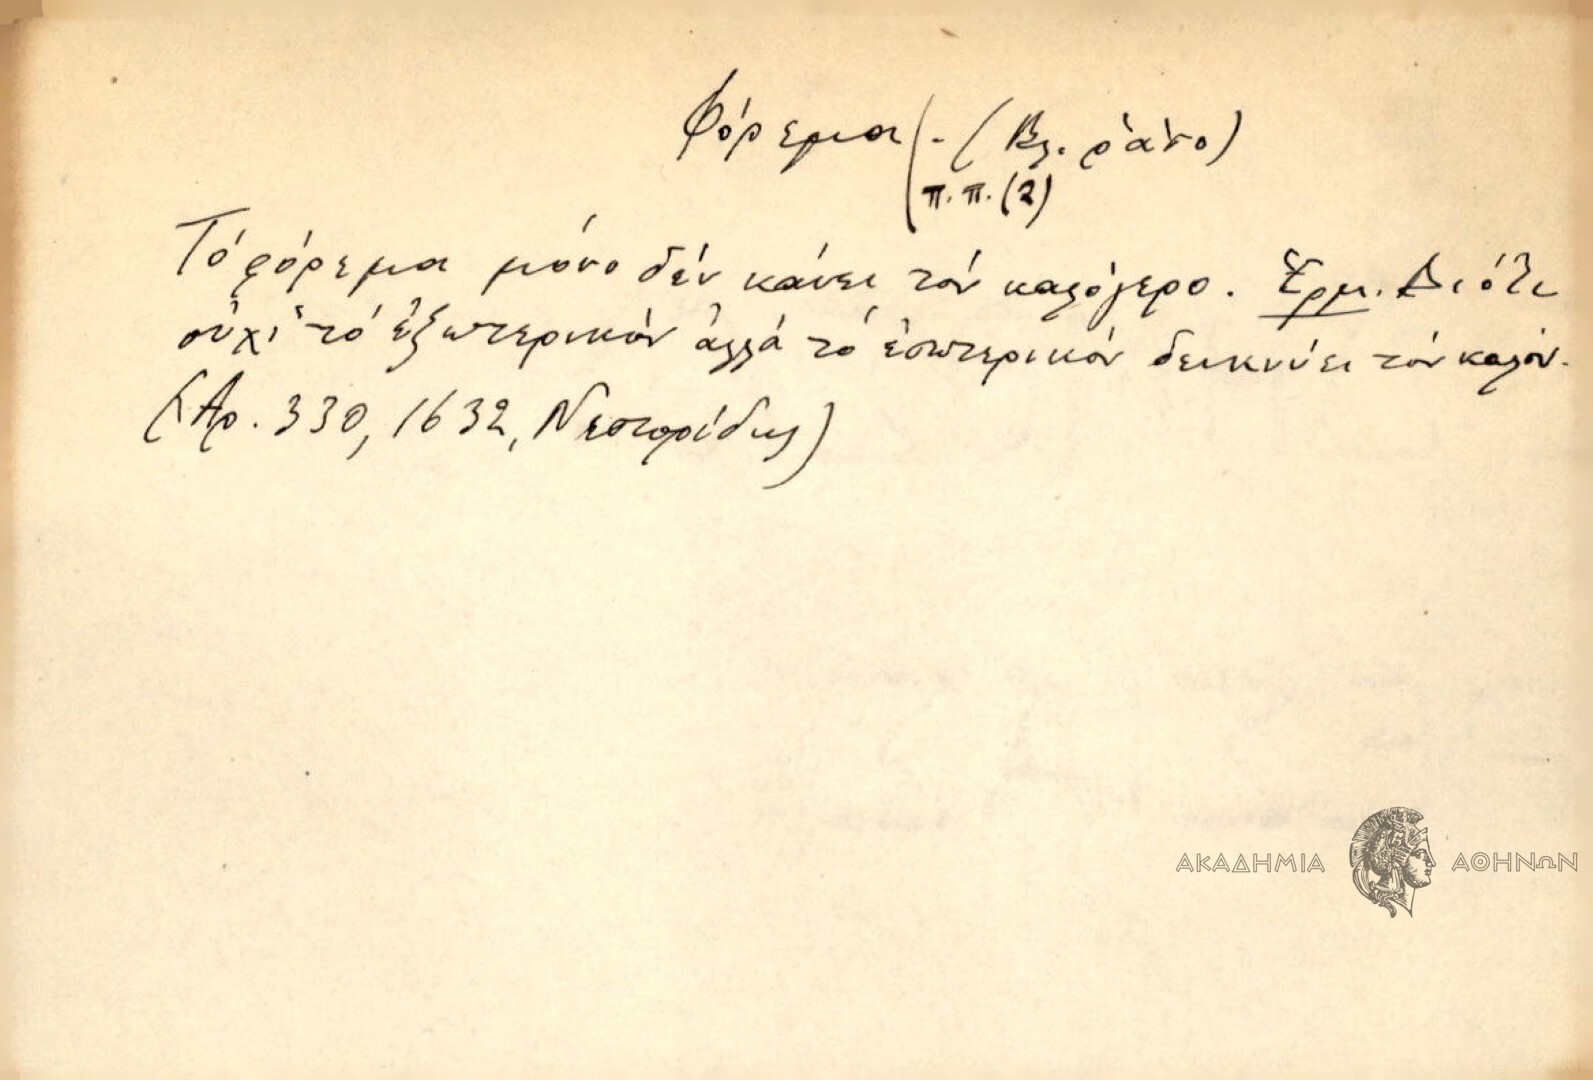 Φόρεμα - (Βλ. ράσο)
π.π. (2)
Τό φόρεμα μόνο δέν κάνει τόν καλόγερο. Ἑρμ. Διότι
οὐχὶ τό ἐξωτερικόν ἀλλά τό ἐσωτερικόν δεικνύει τόν καλόν.
(Ἀρ. 330, 1632, Νεστορίδης)
ΑΚΑΔΗΜΙΑ ΑΘΗΝΩΝ